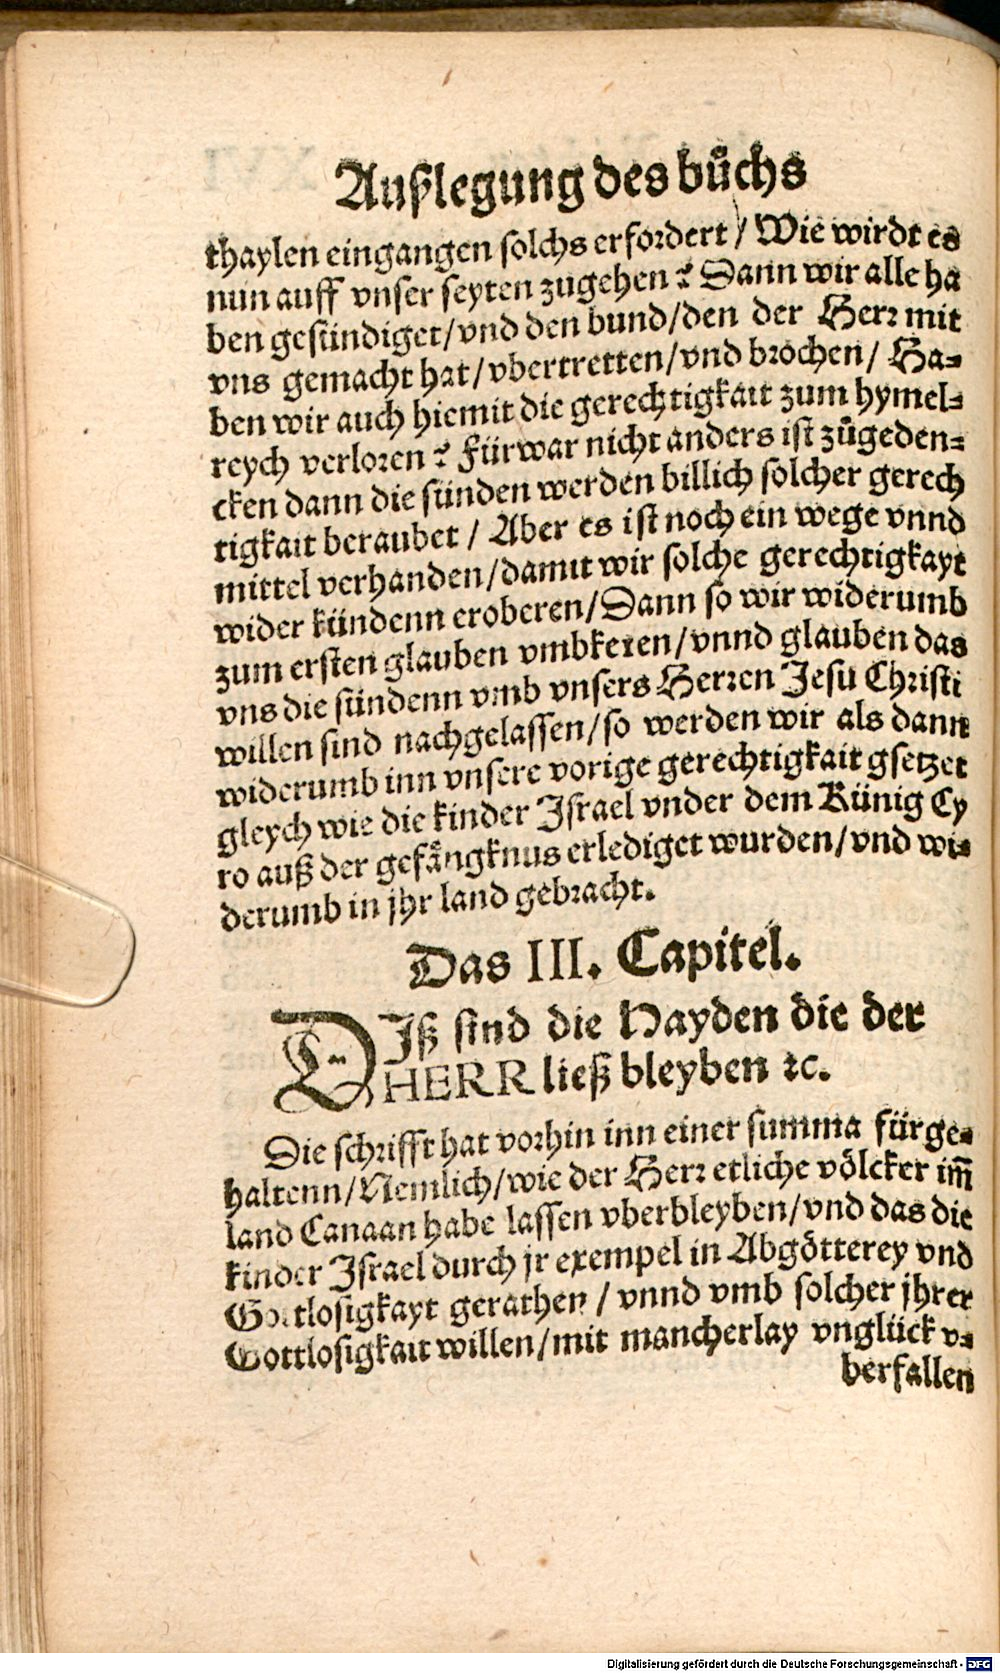 Außlegung des bůchs
thaylen eingangen solchs erfordert / Wie wirdt es
nun auff vnser seyten zugehen? Dann wir alle ha
ben gesündiget/vnd den bund/den der Herr mit
vns gemacht hat/vbertretten/vnd brochen/ Ha-
ben wir auch hiemit die gerechtigkait zum hymel-
reych verloren? Fürwar nicht anders ist zůgeden-
cken dann die sünden werden billich solcher gerech
tigkait beraubet / Aber es ist noch ein wege vnnd
mittel verhanden/damit wir solche gerechtigkayt
wider kündenn eroberen/Dann so wir widerumb
zum ersten glauben vmbkeren/vnnd glauben das
vns die sündenn vmb vnsers Herren Jesu Christi
willen sind nachgelassen/so werden wir als dann
widerumb inn vnsere vorige gerechtigkait gsetzet
gleych wie die kinder Israel vnder dem Künig Cy
ro auß der gefängknus erlediget wurden/vnd wi-
derumb in jhr land gebracht.
Das III. Capitel.
DIß sind die Hayden die der
HERR ließ bleyben ꝛc.
Die schrifft hat vorhin inn einer summa fürge-
haltenn/Nemlich/wie der Herr etliche völcker im̄
land Canaan habe lassen vberbleyben/vnd das die
kinder Israel durch jr exempel in Abgötterey vnd
Gottlosigkayt gerathen / vnnd vmb solcher jhrer
Gottlosigkait willen/mit mancherlay vnglück v-
berfallen
Digitalisierung gefördert durch die Deutsche Forschungsgemeinschaft - DFG